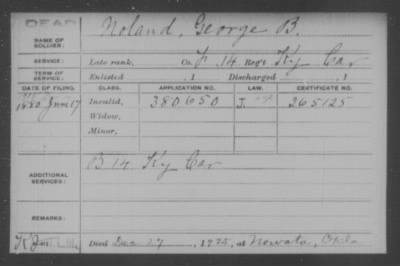 DEAD
NAME OF SOLDIER: Noland, George B.
SERVICE: Late rank, Co. F, 14 Reg't Ky Cav
TERM OF SERVICE: Enlisted , 1 Discharged , 1
DATE OF FILING. CLASS. APPLICATION NO. LAW. CERTIFICATE NO.
1880 June 17 Invalid, 380650 265125
Widow,
Minor,
ADDITIONAL SERVICES: B 14 Ky Cav
REMARKS:
Died Dec 27, 1925, at Nowata, Okla